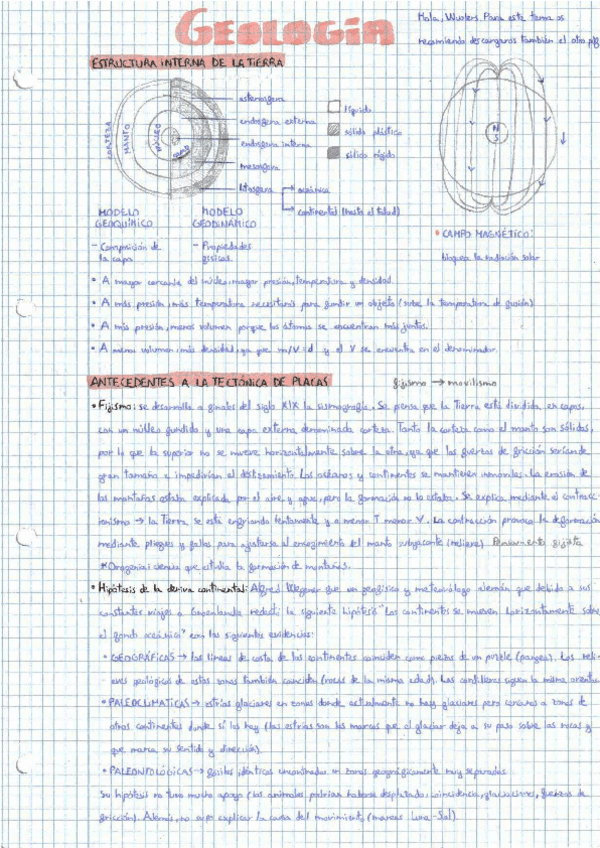 GEOLOGÍA
Hola, Wuolers. Para este tema os
recomiendo descargaros también el otro pdf
ESTRUCTURA INTERNA DE LA TIERRA
CORTEZA
MANTO
NÚCLEO
astenosfera
endosfera externa
endosfera interna
mesosfera
litosfera → oceánica
→ continental (hasta el talud)
líquido
sólido plástico
sólido rígido
N
S
MODELO GEOQUÍMICO
- Composición de
la capa
MODELO GEODINÁMICO
- Propiedades
físicas
* CAMPO MAGNÉTICO:
bloquea la radiación solar
• A mayor cercanía del núcleo: mayor presión, temperatura y densidad.
• A más presión, más temperatura necesitaré para fundir un objeto (sube la temperatura de fusión)
• A más presión, menos volumen porque los átomos se encuentran más juntos.
• A menor volumen, más densidad, ya que m/V=d y el V se encuentra en el denominador.
ANTECEDENTES A LA TECTÓNICA DE PLACAS
fijismo → movilismo
• Fijismo: se desarrolla a finales del siglo XIX la sismografía. Se piensa que la Tierra está dividida en capas,
con un núcleo fundido y una capa externa denominada corteza. Tanto la corteza como el manto son sólidos,
por lo que la superior no se mueve horizontalmente sobre la otra, ya que las fuerzas de fricción serían de
gran tamaño e impedirían el deslizamiento. Los océanos y continentes se mantienen inmóviles. La erosión de
las montañas estaba explicada por el aire y agua, pero la formación no lo estaba. Se explica mediante el contracc-
ionismo → la Tierra se está enfriando lentamente y a menor T menor V. La contracción provoca la deformación
mediante pliegues y fallas para ajustarse al encogimiento del manto subyacente (relieve). Pensamiento fijista
*Orogenia: ciencia que estudia la formación de montañas.
• Hipótesis de la deriva continental: Alfred Wegener que un geofísico y meteorólogo alemán que debido a sus
constantes viajes a Groenlandia redactó la siguiente hipótesis "Los continentes se mueven horizontalmente sobre
el fondo oceánico" con las siguientes evidencias:
• GEOGRÁFICAS → las líneas de costa de los continentes coinciden como piezas de un puzzle (pangea). Los reli-
eves geológicos de estas zonas también coinciden (rocas de la misma edad). Las cordilleras siguen la misma orientación
• PALEOCLIMÁTICAS → estrías glaciares en zonas donde actualmente no hay glaciares pero cercanas a zonas de
otros continentes donde sí los hay (las estrías son las marcas que el glaciar deja a su paso sobre las rocas y
que marca su sentido y dirección).
• PALEONTOLÓGICAS → fósiles idénticos encontrados en zonas geográficamente muy separadas
Su hipótesis no tuvo mucho apoyo (los animales podrían haberse desplazado, coincidencia, glaciaciones, fuerzas de
fricción). Además, no supo explicar la causa del movimiento (mareas Luna-Sol).